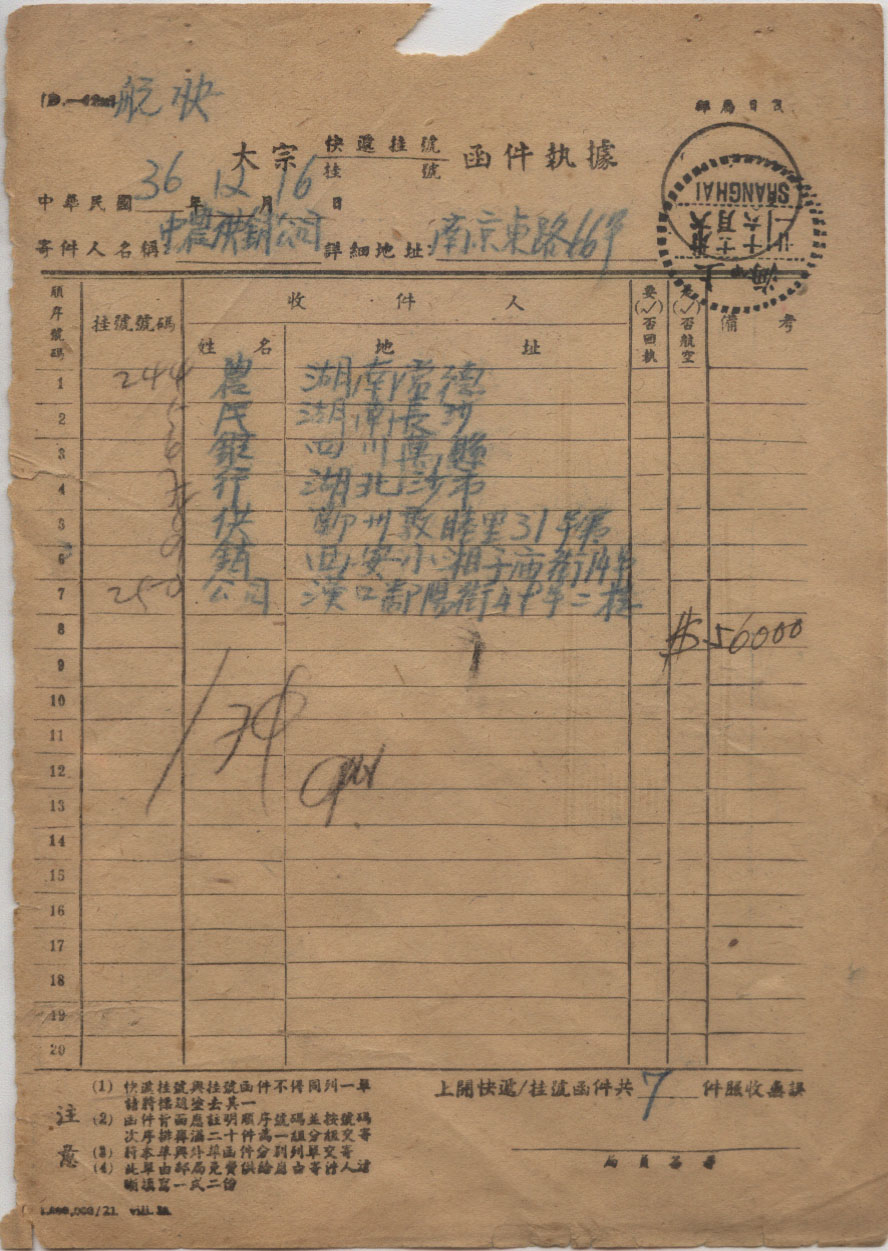 航快
郵局日戳
大宗 快遞挂號 函件執據
挂號
中華民國 36 年 12 月 16 日
寄件人名稱 中農供銷公司 詳細地址: 南京東路66号
SHANGHAI
上海
順序號碼 挂號號碼 收件人 要(✓)否回執 (✓)否航空 備考
姓名 地址
1 244 農 湖南常德
2 5 民 湖南長沙
3 6 銀 四川萬縣
4 行 湖北沙市
5 供 鄭州敦睦里31号
6 9 銷 西安小湘子庙街14号
7 250 公司 漢口鄱陽街49号二楼
8 $56000
9
10
11
12
13
14
15
16
17
18
19
20
注意
(1) 快遞挂號與挂號函件不得同列一單
請將標題塗去其一
(2) 函件背面應註明順序號碼並按號碼
次序排與滿二十件為一組分組交寄
(3) 將本單與外局函件分別列單交寄
(4) 此單由郵局免費供給應由寄件人詳
晰填寫一式二份
上開快遞/挂號函件共 7 件照收無誤
局員簽署